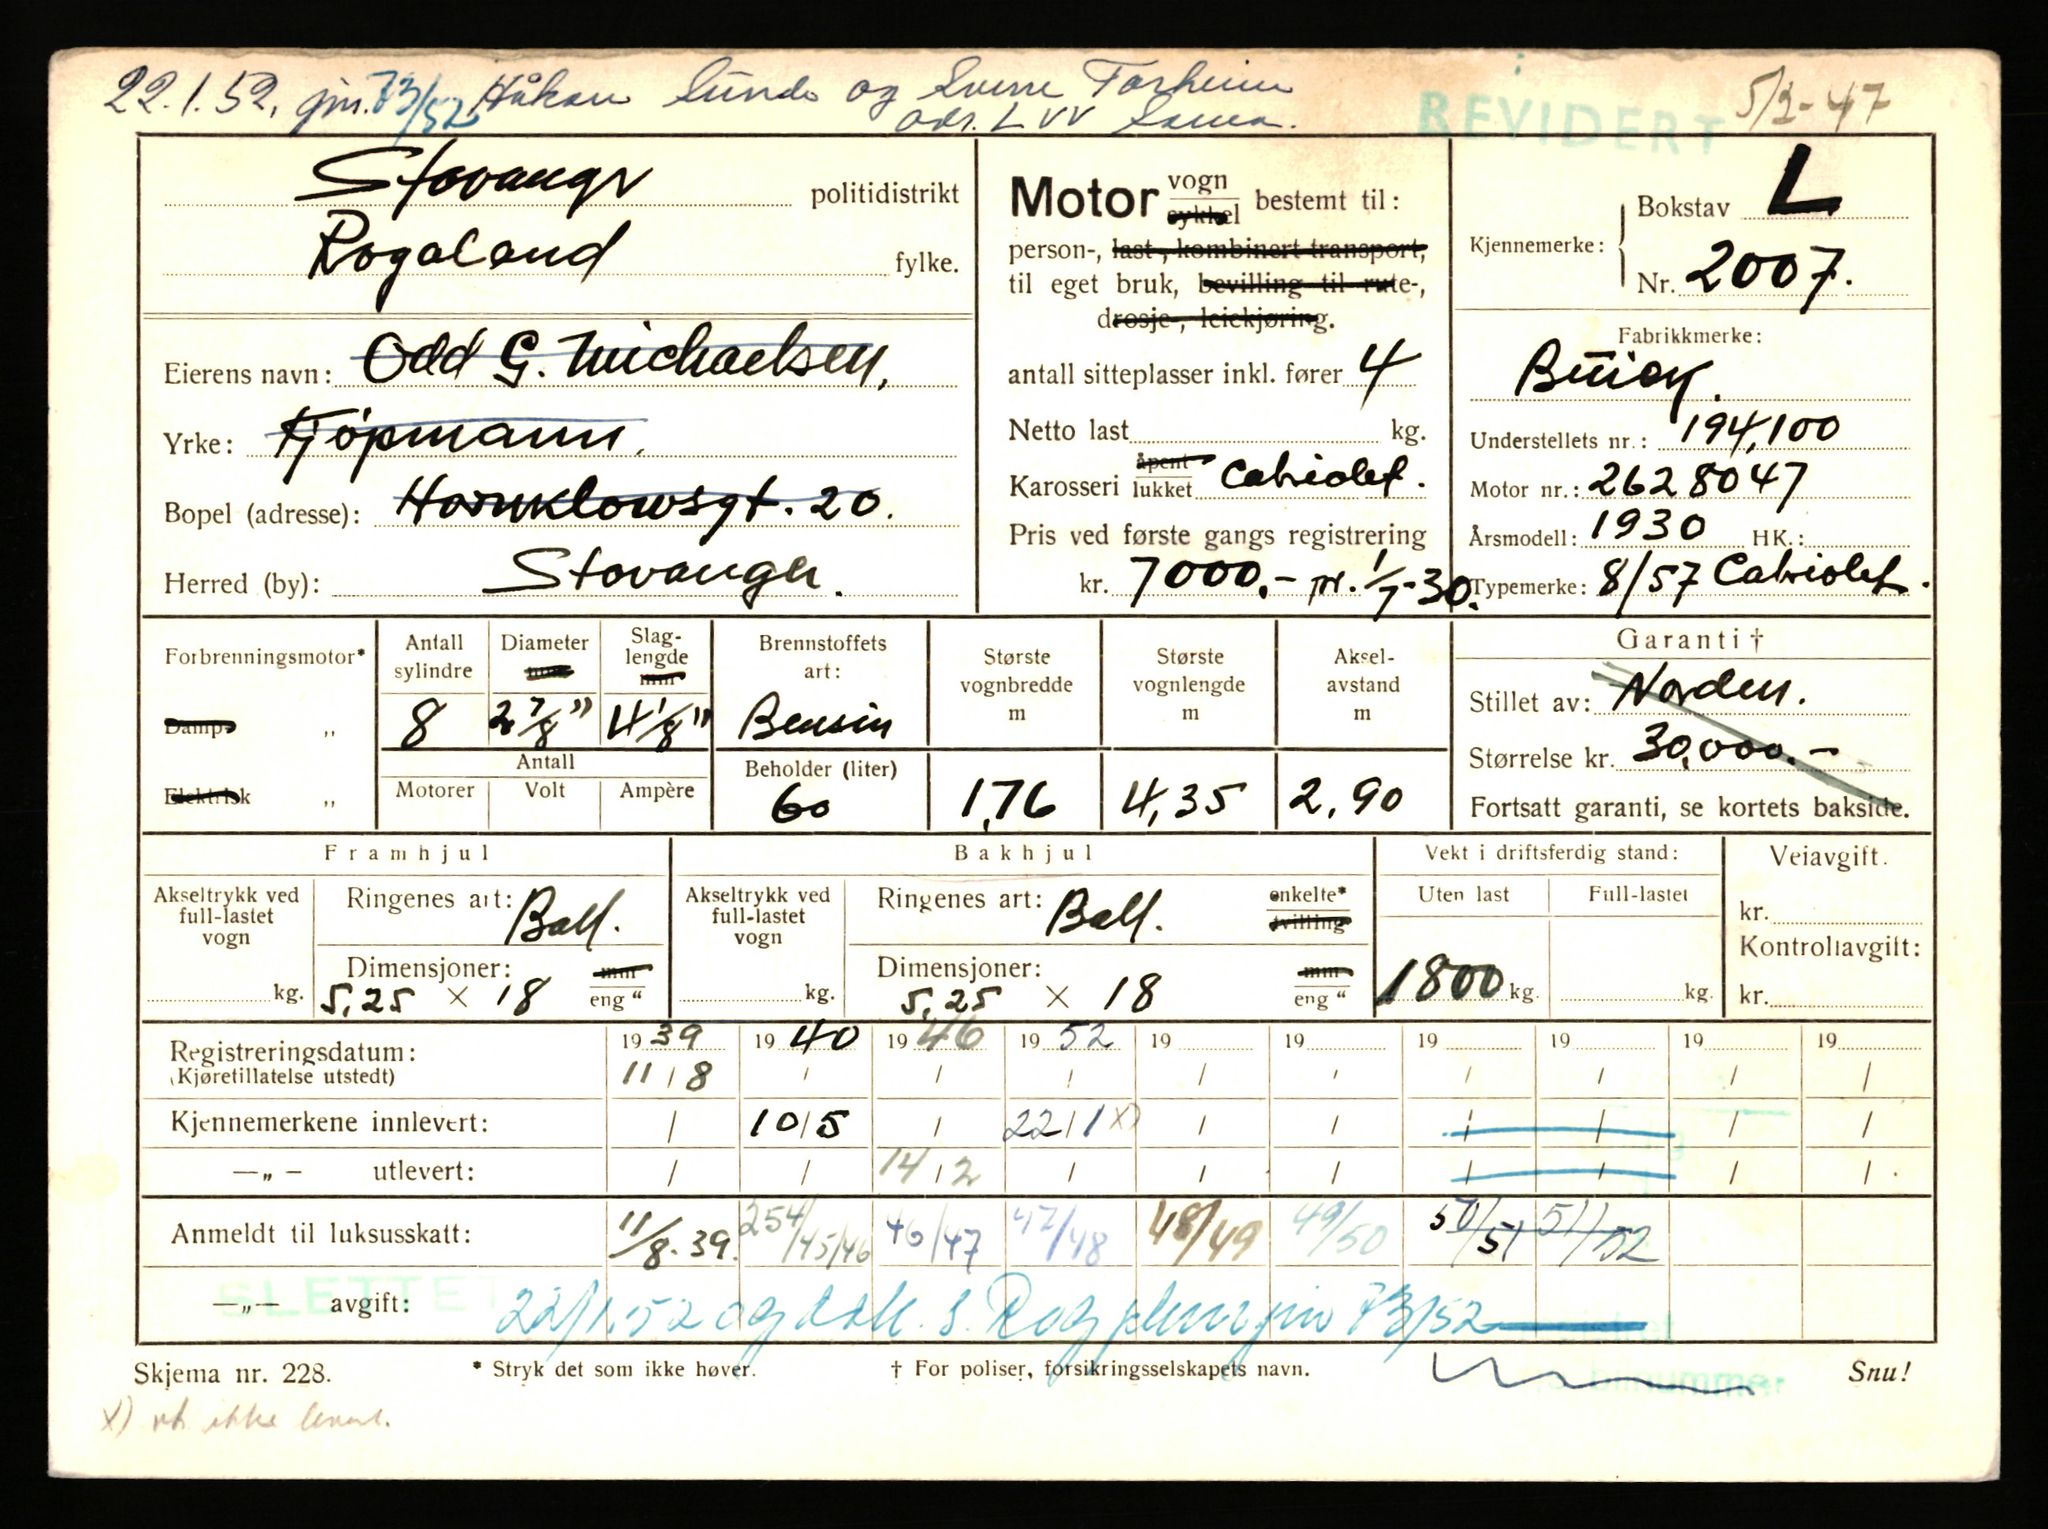 22.1.52. jnr. 73/52 Håkon Sunde og Sverre Forheim
adr. L VV Sama.
BEVIDERT 5/2-47
Stavanger politidistrikt
Rogaland fylke.
Eierens navn: Odd G. Michaelsen,
Yrke: Kjöpmann.
Bopel (adresse): Hornklowsgt. 20.
Herred (by): Stavanger.
Motor vogn sykkel bestemt til:
person-, last-, kombinert transport,
til eget bruk, bevilling til rute-,
drosje-, leiekjøring.
antall sitteplasser inkl. fører 4
Netto last kg.
Karosseri åpent lukket Cabriolet.
Pris ved første gangs registrering
kr. 7000.- pr. 1/7-30.
Kjennemerke: Bokstav L
Nr. 2007.
Fabrikkmerke:
Buick.
Understellets nr.: 194,100
Motor nr.: 2628047
Årsmodell: 1930 HK.:
Typemerke: 8/57 Cabriolet.
Forbrenningsmotor*
Damp- „
Elektrisk „
Antall sylindre Diameter mm Slaglengde mm
8 2 7/8" 4 1/8"
Antall
Motorer Volt Ampère
Brennstoffets art:
Bensin
Beholder (liter)
60
Største vognbredde m
1,76
Største vognlengde m
4,35
Aksel-avstand m
2,90
Garanti †
Stillet av: Norden.
Størrelse kr. 30,000.-
Fortsatt garanti, se kortets bakside.
Framhjul
Akseltrykk ved full-lastet vogn
kg.
Ringenes art: Ball.
Dimensjoner: mm
5,25 × 18 eng "
Bakhjul
Akseltrykk ved full-lastet vogn
kg.
Ringenes art: Ball. enkelte* tvilling
Dimensjoner: mm
5,25 × 18 eng "
Vekt i driftsferdig stand:
Uten last Full-lastet
1800 kg. kg.
Veiavgift.
kr.
Kontrollavgift:
kr.
Registreringsdatum: 1939 1940 1946 1952 19 19 19 19 19 19
(Kjøretillatelse utstedt) 11/8 / / / / / / / / /
Kjennemerkene innlevert: / 10/5 / 22/1 x) / / / / / /
—„— utlevert: / / 14/2 / / / / / / /
Anmeldt til luksusskatt: 11/8.39. 254/45/46 46/47 47/48 48/49 49/50 50/51 51/52
SLETTET
—„— avgift: 22/1.52 og 73/52
Skjema nr. 228. * Stryk det som ikke høver. † For poliser, forsikringsselskapets navn. bilnummer Snu!
x) ikke